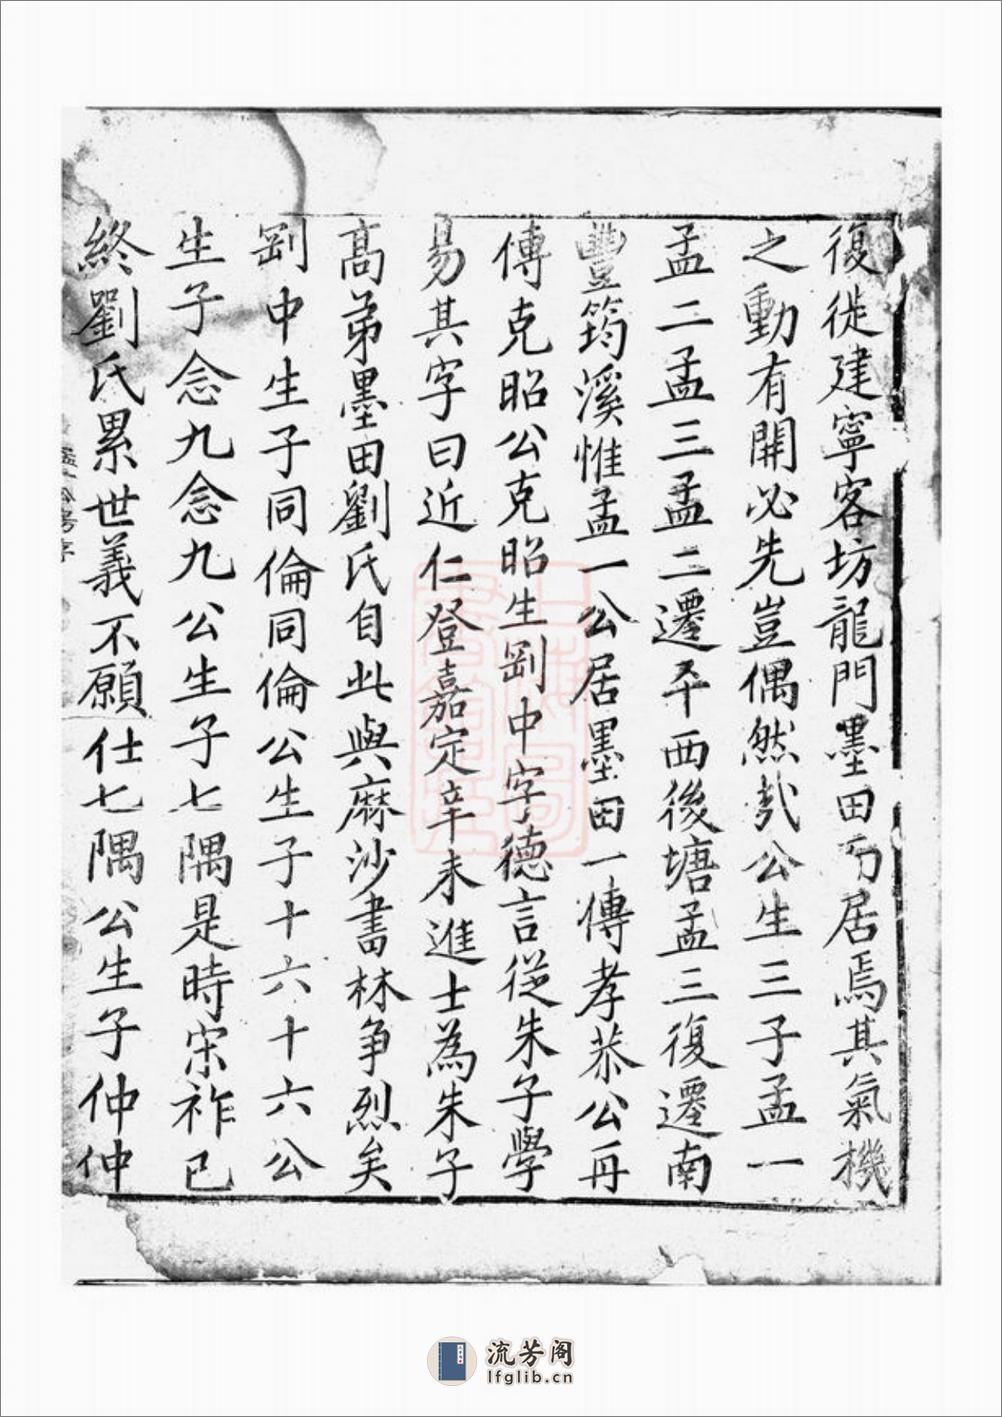 復徙建寧客坊龍門墨田丂居焉其氣機
之動有開必先豈偶然㢤公生三子孟一
孟二孟三孟二遷平西後塘孟三復遷南
豐筠溪惟孟一公居墨田一傳孝恭公再
傳克昭公克昭生剛中字德言從朱子學
易其字曰近仁登嘉定辛未進士為朱子
高弟墨田劉氏自此與麻沙書林爭烈矣
剛中生子同倫同倫公生子十六十六公
生子念九念九公生子七隅是時宋祚已
終劉氏累世義不願仕七隅公生子仲仲
流芳阁
lfglib.cn